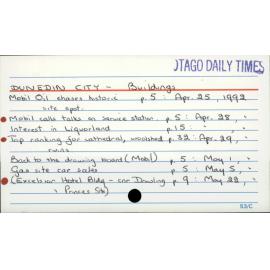 OTAGO DAILY TIMES
DUNEDIN CITY - Buildings
Mobil Oil chases historic p. 5 : Apr. 25, 1992
site spot.
Mobil calls talks on service station. p. 5 : Apr. 28, "
Interest in Liquorland p. 15 : " "
Top ranking for cathedral, woolshed p. 32 : Apr. 29, "
Back to the drawing board (Mobil) p. 5 : May 1, "
Gas site car sales p. 5 : May 5, "
(Excelsior Hotel Bldg - cnr Dowling p. 9 : May 22, "
& Princes Sts)
53/C